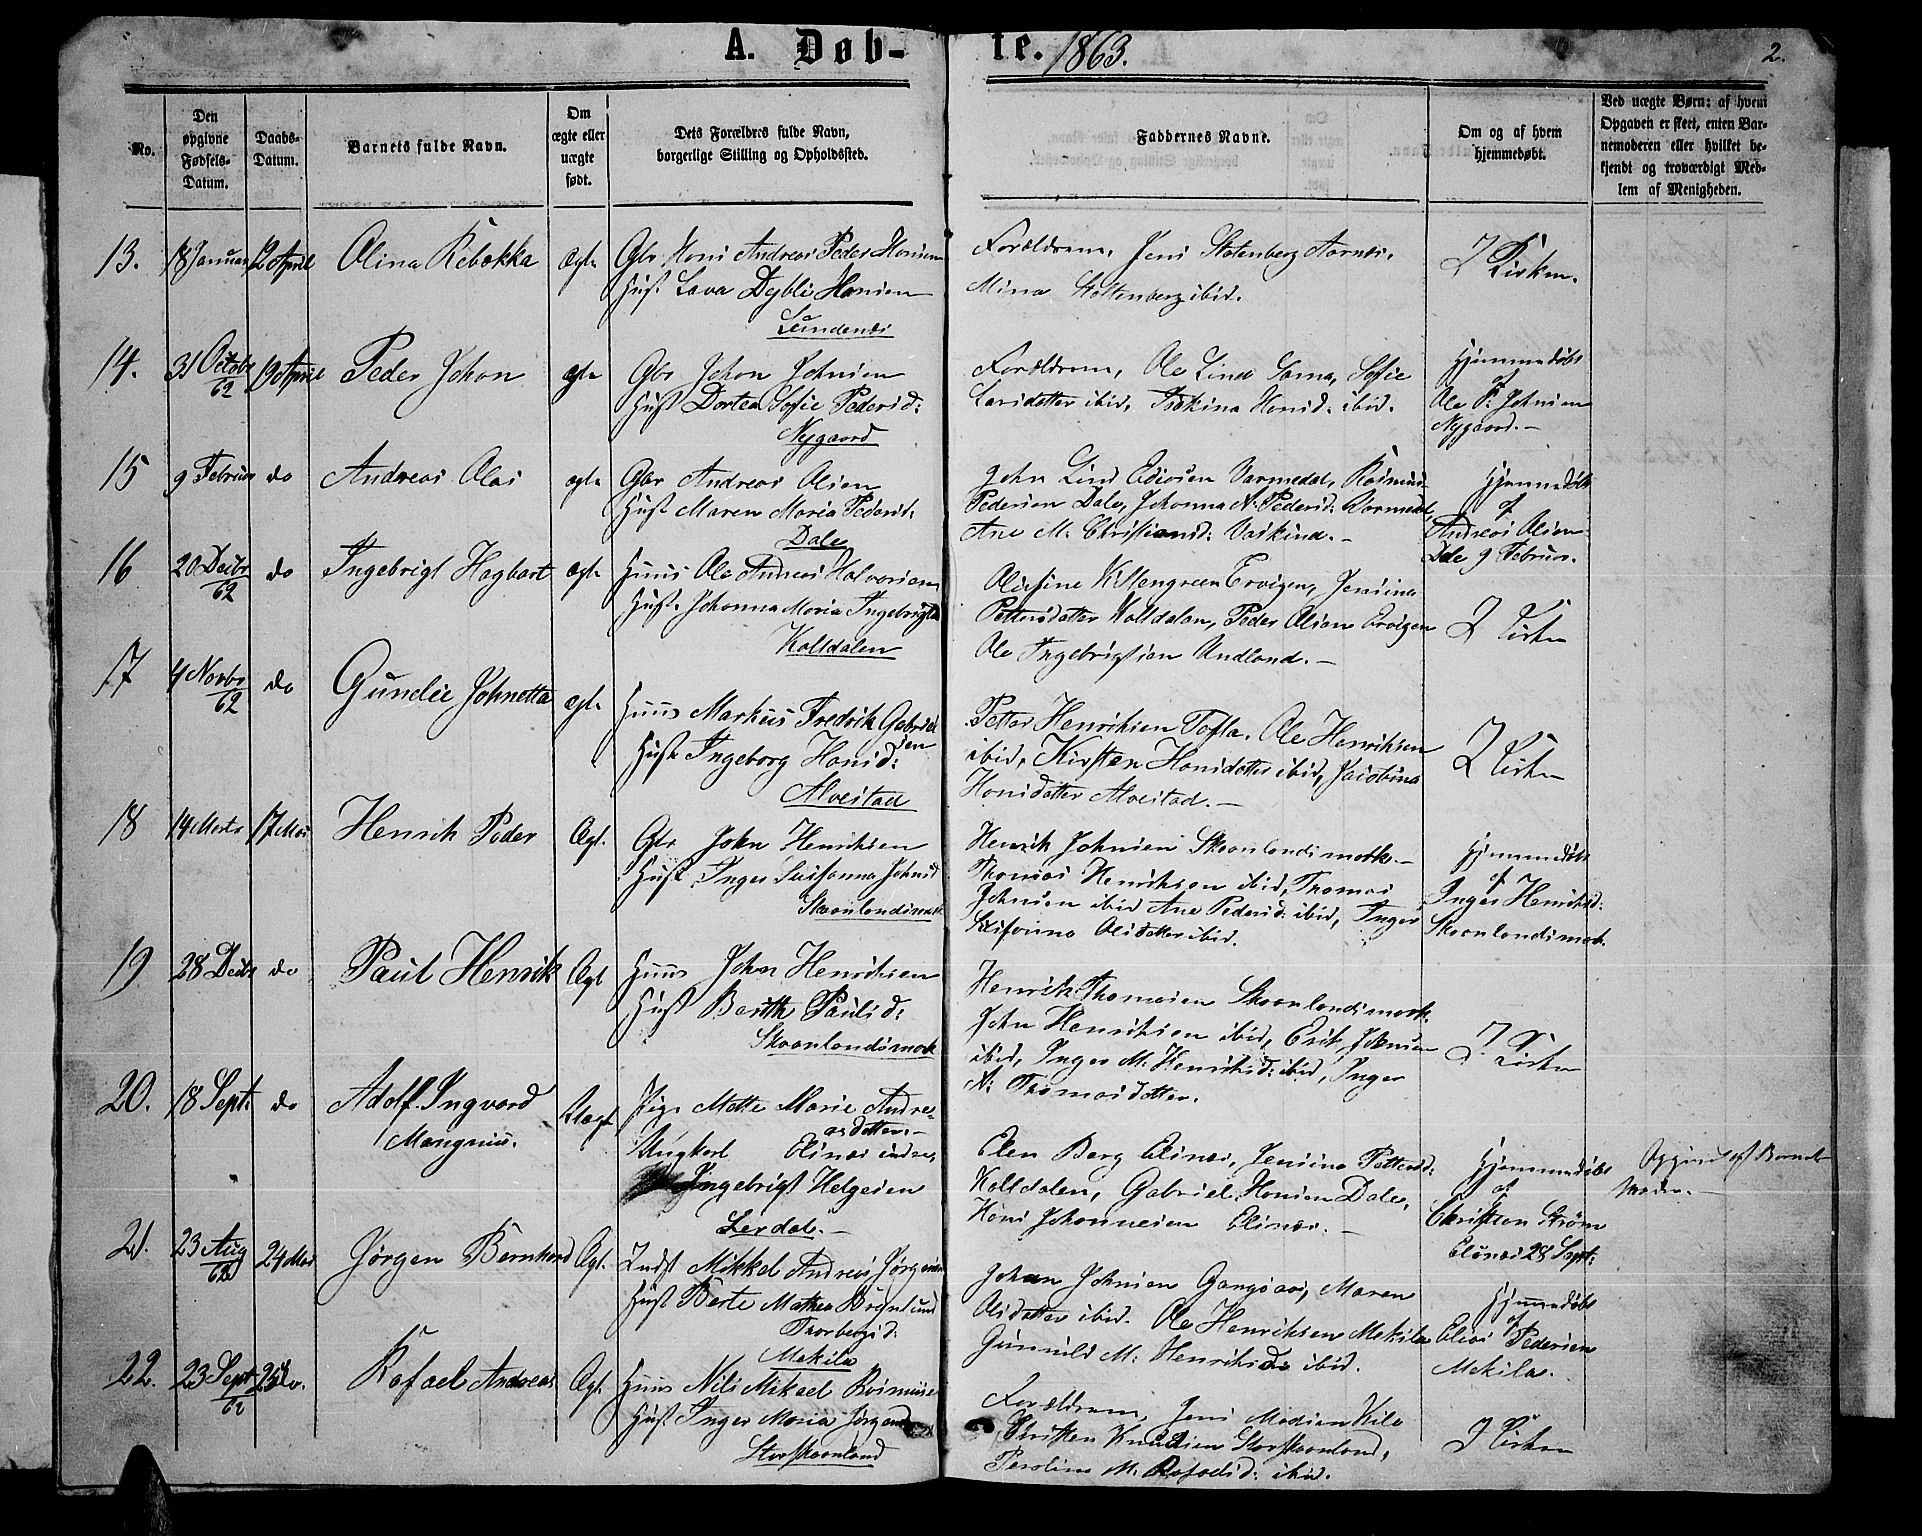 A. Døb-
te. 1863.
2.
No.
Den opgivne Fødsels-Datum.
Daabs-Datum.
Barnets fulde Navn.
Om ægte eller uægte født.
Dets Forældres fulde Navn, borgerlige Stilling og Opholdssted.
Faddernes Navne.
Om og af hvem hjemmedøbt.
Ved uægte Børn: af hvem Opgaven er skeet, enten Barnemoderen eller hvilket bekjendt og troværdigt Medlem af Menigheden.
13. 18 Januar 12 April Olina Rebekka ægte
Gbr Hons Andreas Peder Hansen
Hust Lava Dybli Hansen
Lundenes
Forældrene, Jens Stotenberg Aarnes,
Mina Stoltenberg ibid.
I Kirken.
14. 31 Octobr/62 19 April Peder Johan ægte
Gbr Johan Johnsen
Hust Dortea Sofie Pedersd:
Nygaard
Forældrene, Ole Sama, Sofie
Larsdatter ibid, Hansd: ibid.
Hjemmedøbt
af
Ole P: Johnsen
Nygaard.-
15 9 Februar do Andreas Olai ægte
Gbr Andreas Olsen
Hust Maren Maria Pedersd:
Dale
John Lind Varmedal, Rasmus
Pedersen Dale, Johanna N: Pedersd:
Ane M: Christiansd:
Hjemmedøbt
af
Andreas Olsen
Dale 9 Februar.
16 20 Decbr/62 do Ingebrigt Hagbart ægte
Huus Ole Andreas Halvorsen
Hust. Johanna Maria Ingebrigtsd
Kolldalen
Olufine Killengreen Ervigen, Jensina
Pettersdatter Kolldalen, Peder Olsen Ervigen
Ole Ingebrigtsen Undland.-
I Kirken
17 4 Novbr/62 do Gundie Johnetta ægte
Huus Markus Fredrik Gabriel
sen
Hust Ingeborg Hansd:
Alvestad
Petter Henriksen Tofta. Ole Henriksen
ibid, Kirsten Hansdatter ibid, Jacobina
Hansdatter Alvestad.-
I Kirken
18 14 Marts 17 Mai Henrik Peder Ægt.
Gbr John Henriksen
Hust Inger Susanna Johnsd
Skaanlandsmark
Henrik Johnsen Skaanlandsmark.-
Thomas Henriksen ibid, Thomas
Johnsen ibid Ane Pedersd: ibid, Inger
Olsdatter ibid.
Hjemmedøbt
af
Inger Henriksd:
Skaanlandsmark.
19 28 Decbr do Paul Henrik Ægt
Huus John Henriksen
Hust Berith Paulsd:
Skaanlandsmark
Henrik Thomasen Skaanlandsmark.
John Henriksen ibid, Erik Johnsen
ibid, Inger M. Henriksd: ibid, Inger
N: Thomasdatter.
I Kirken
20. 18 Sept: do Adolf Ingvard Uægt
Mangnus.
Pige Mette Marie Andre-
asdatter.-
Ungkarl Elsnæs
Ingebrigt Helgesen
Lerdal.-
Elen Berg Elsnæs, Jensina Pettersd:
Kolldalen, Gabriel Hansen Dale,
Hans Johannesen Elsnæs.-
Hjemmedøbt
af
Christian Strøm
Elsnæs 28 Sept:
Opgivet af Barnets
Moder.-
21. 23 Aug/62 24 Mai Jørgen Bernhard Ægt.
Indst Mikkel Andreas Jørgensen
Hust Berte Mathea
Thorbergsd:
Mekila
Johan Johnsen Gangsaas, Maren
Olsdatter ibid. Ole Henriksen Mekila
Gunnild M: Henriksd: ibid.
Hjemmedøbt
af
Elias Pedersen
Mekila.
22. 23 Sept/62 25 do. Rafael Andreas Ægt.
Huus Nils Mikael Rasmussen
Hust Inger Maria Jørgensd
Storskaanland
Forældrene, Jens Madsen Kile
Kristen Knudsen Storskaanland,
Peroline M. Rafaelsd: ibid.
I Kirken